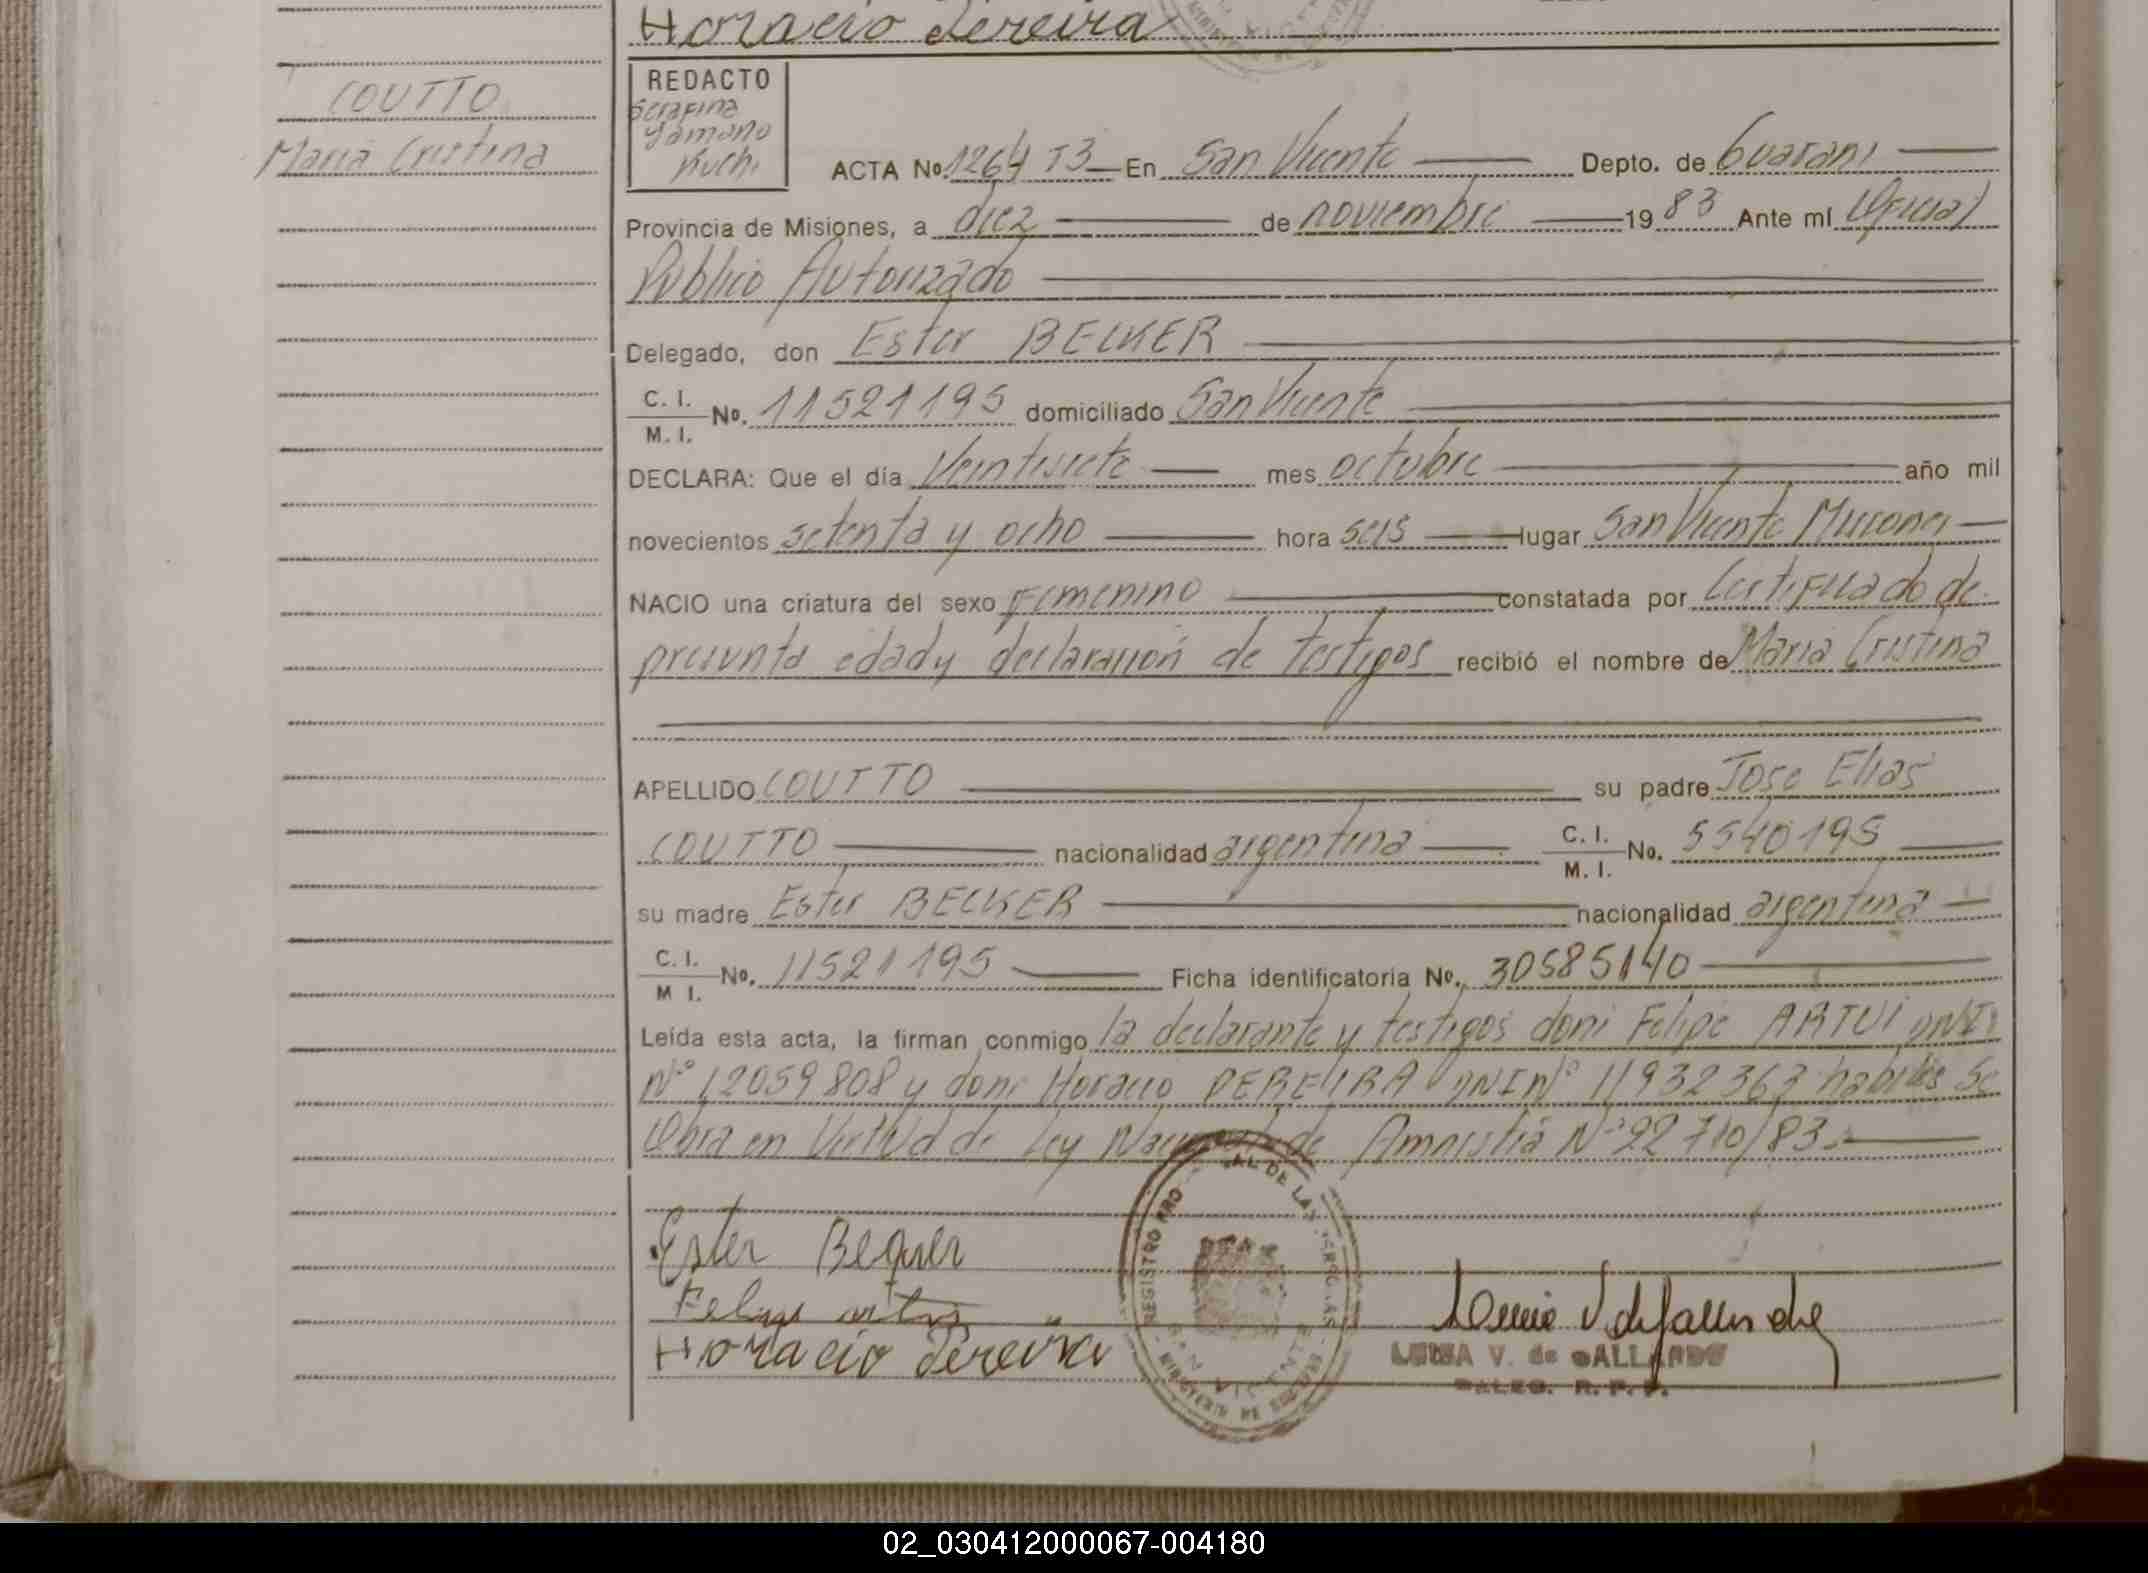 Horacio Pereira
COUTTO
Maria Cristina
REDACTO
Serafina
Yamano
Kuchi
ACTA No. 1264 T3 En San Vicente Depto. de Guarani
Provincia de Misiones, a diez de noviembre 19 83 Ante mí Oficial
Publico Autorizado
Delegado, don Ester BECKER
C. I.
M. I. No. 11521195 domiciliado San Vicente
DECLARA: Que el día Veintisiete mes octubre año mil
novecientos setenta y ocho hora seis lugar San Vicente Misiones
NACIO una criatura del sexo Femenino constatada por Certificado de
presunta edad y declaración de testigos recibió el nombre de Maria Cristina
APELLIDO COUTTO su padre Jose Elias
COUTTO nacionalidad argentina C. I.
M. I. No. 5540195
su madre Ester BECKER nacionalidad argentina
C. I.
M I. No. 11521195 Ficha identificatoria No. 30585140
Leída esta acta, la firman conmigo la declarante y testigos don: Felipe ARTUI DNI
Nº 12059808 y don: Horacio PEREIRA DNI Nº 11932363 habiles Se
Obra en Virtud de Ley Nacional de Amnistia Nº 22710/83.
Ester Bequer
Horacio Pereira
REGISTRO PRO AL DE LAS PERSONAS
SAN VICENTE
MINISTERIO DE
LUISA V. de GALLARDO
R. P. P.
02_030412000067-004180